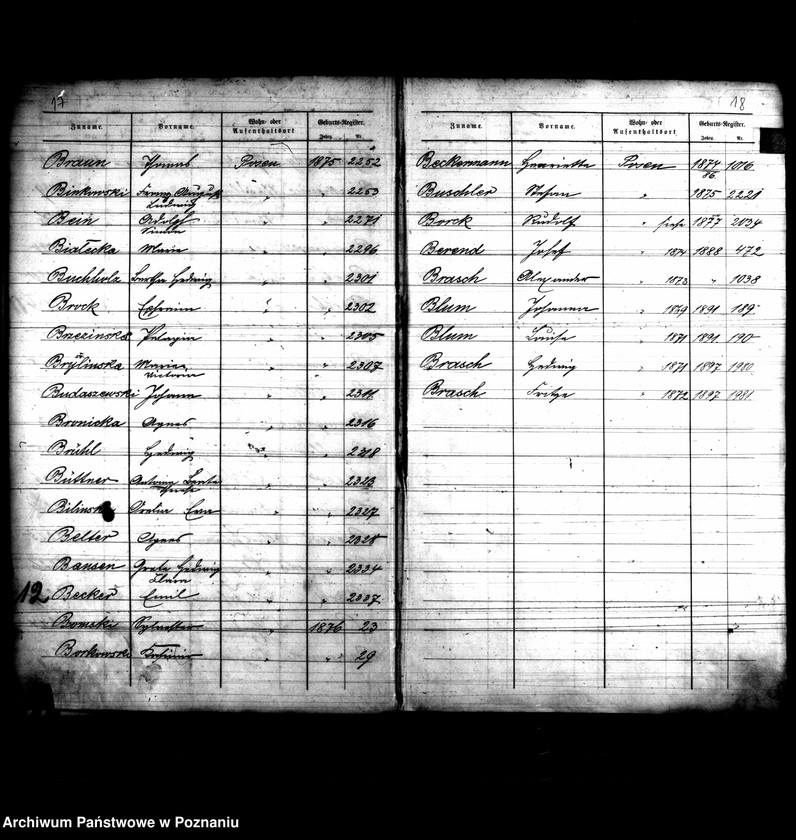 17
Zuname. Vorname. Wohn- oder Aufenthaltsort Geburts-Register. Jahrg. Nr.
Braun Posen 1875 2252
Binkowski Ludwig " " 2253
Bein Adolf " " 2271
Simon
Białecka Maria " " 2296
Buchholz Bertha Hedwig " " 2301
Brock Ephraim " " 2302
Brzezinska Pelagia " " 2305
Brylinska Maria " " 2307
Victoria
Budaszewski Johann " " 2311
Bronicka Agnes " " 2316
Brühl Hedwig " 2318
Büttner " " 2323
Bilinska Eva " " 2327
Belter Agnes " " 2328
Bansen Grete Hedwig " " 2334
Clara
12 Becker Emil " " 2337
Bomski Sylvester " 1876 23
Borkowski Kasimir " " 29
18
Zuname. Vorname. Wohn- oder Aufenthaltsort Geburts-Register. Jahrg. Nr.
Beckermann Henriette Posen 1874 1016
86.
Buschler Stefan " 1875 2221
Borck Rudolf " 1877 2034
Berend Josef " 1874 1888 472
Brasch Alexander " 1873 " 1038
Blum Johanna " 1869 1891 189
Blum Luise " 1871 1891 190
Brasch Hedwig " 1871 1897 1980
Brasch Fritze " 1872 1897 1981
Archiwum Państwowe w Poznaniu